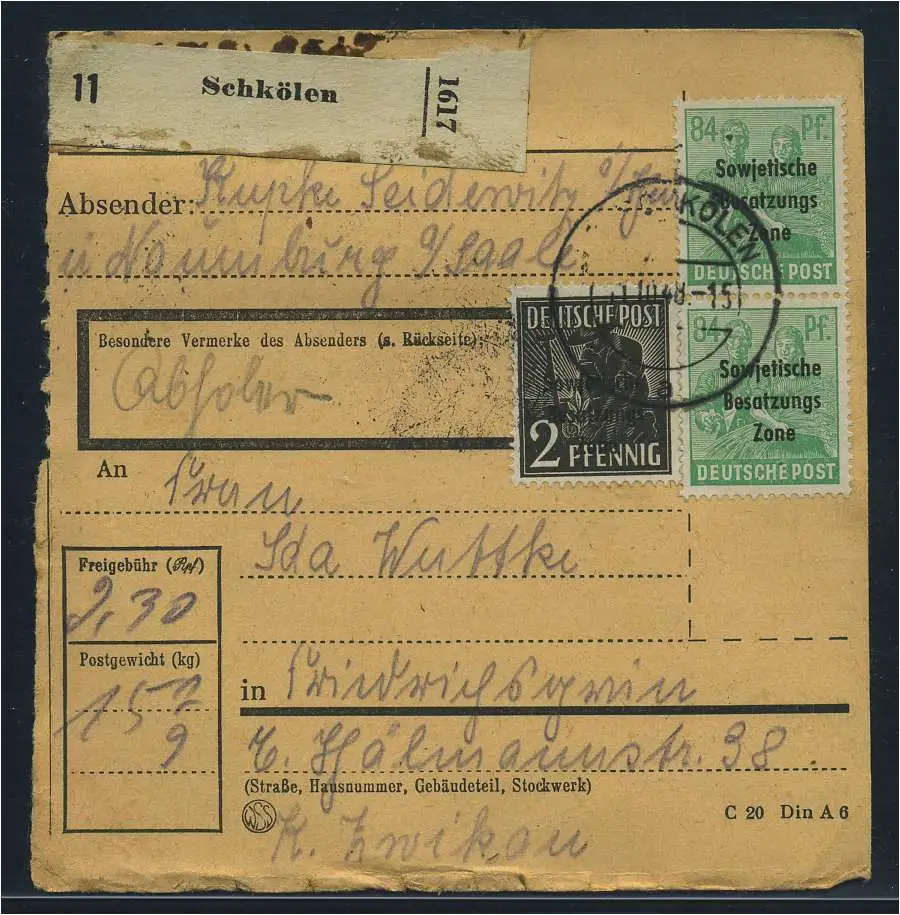 11 Schkölen 1617
Absender: Rupke Seiderwitz
Naumburg a/Saale
Besondere Vermerke des Absenders (s. Rückseite):
Abholer
84 Pf.
Sowjetische
Besatzungs
Zone
DEUTSCHE POST
KÖLEN
48.-15
a
DEUTSCHE POST
Sowjetische
Besatzungs
2 PFENNIG
84 Pf.
Sowjetische
Besatzungs
Zone
DEUTSCHE POST
An Frau
Ida Wuttke
Freigebühr (Rpf)
2,30
Postgewicht (kg)
15
9
in Friedrichsgrün
E. Thälmannstr. 38.
(Straße, Hausnummer, Gebäudeteil, Stockwerk)
WSS
C 20 Din A 6
K. Zwikau